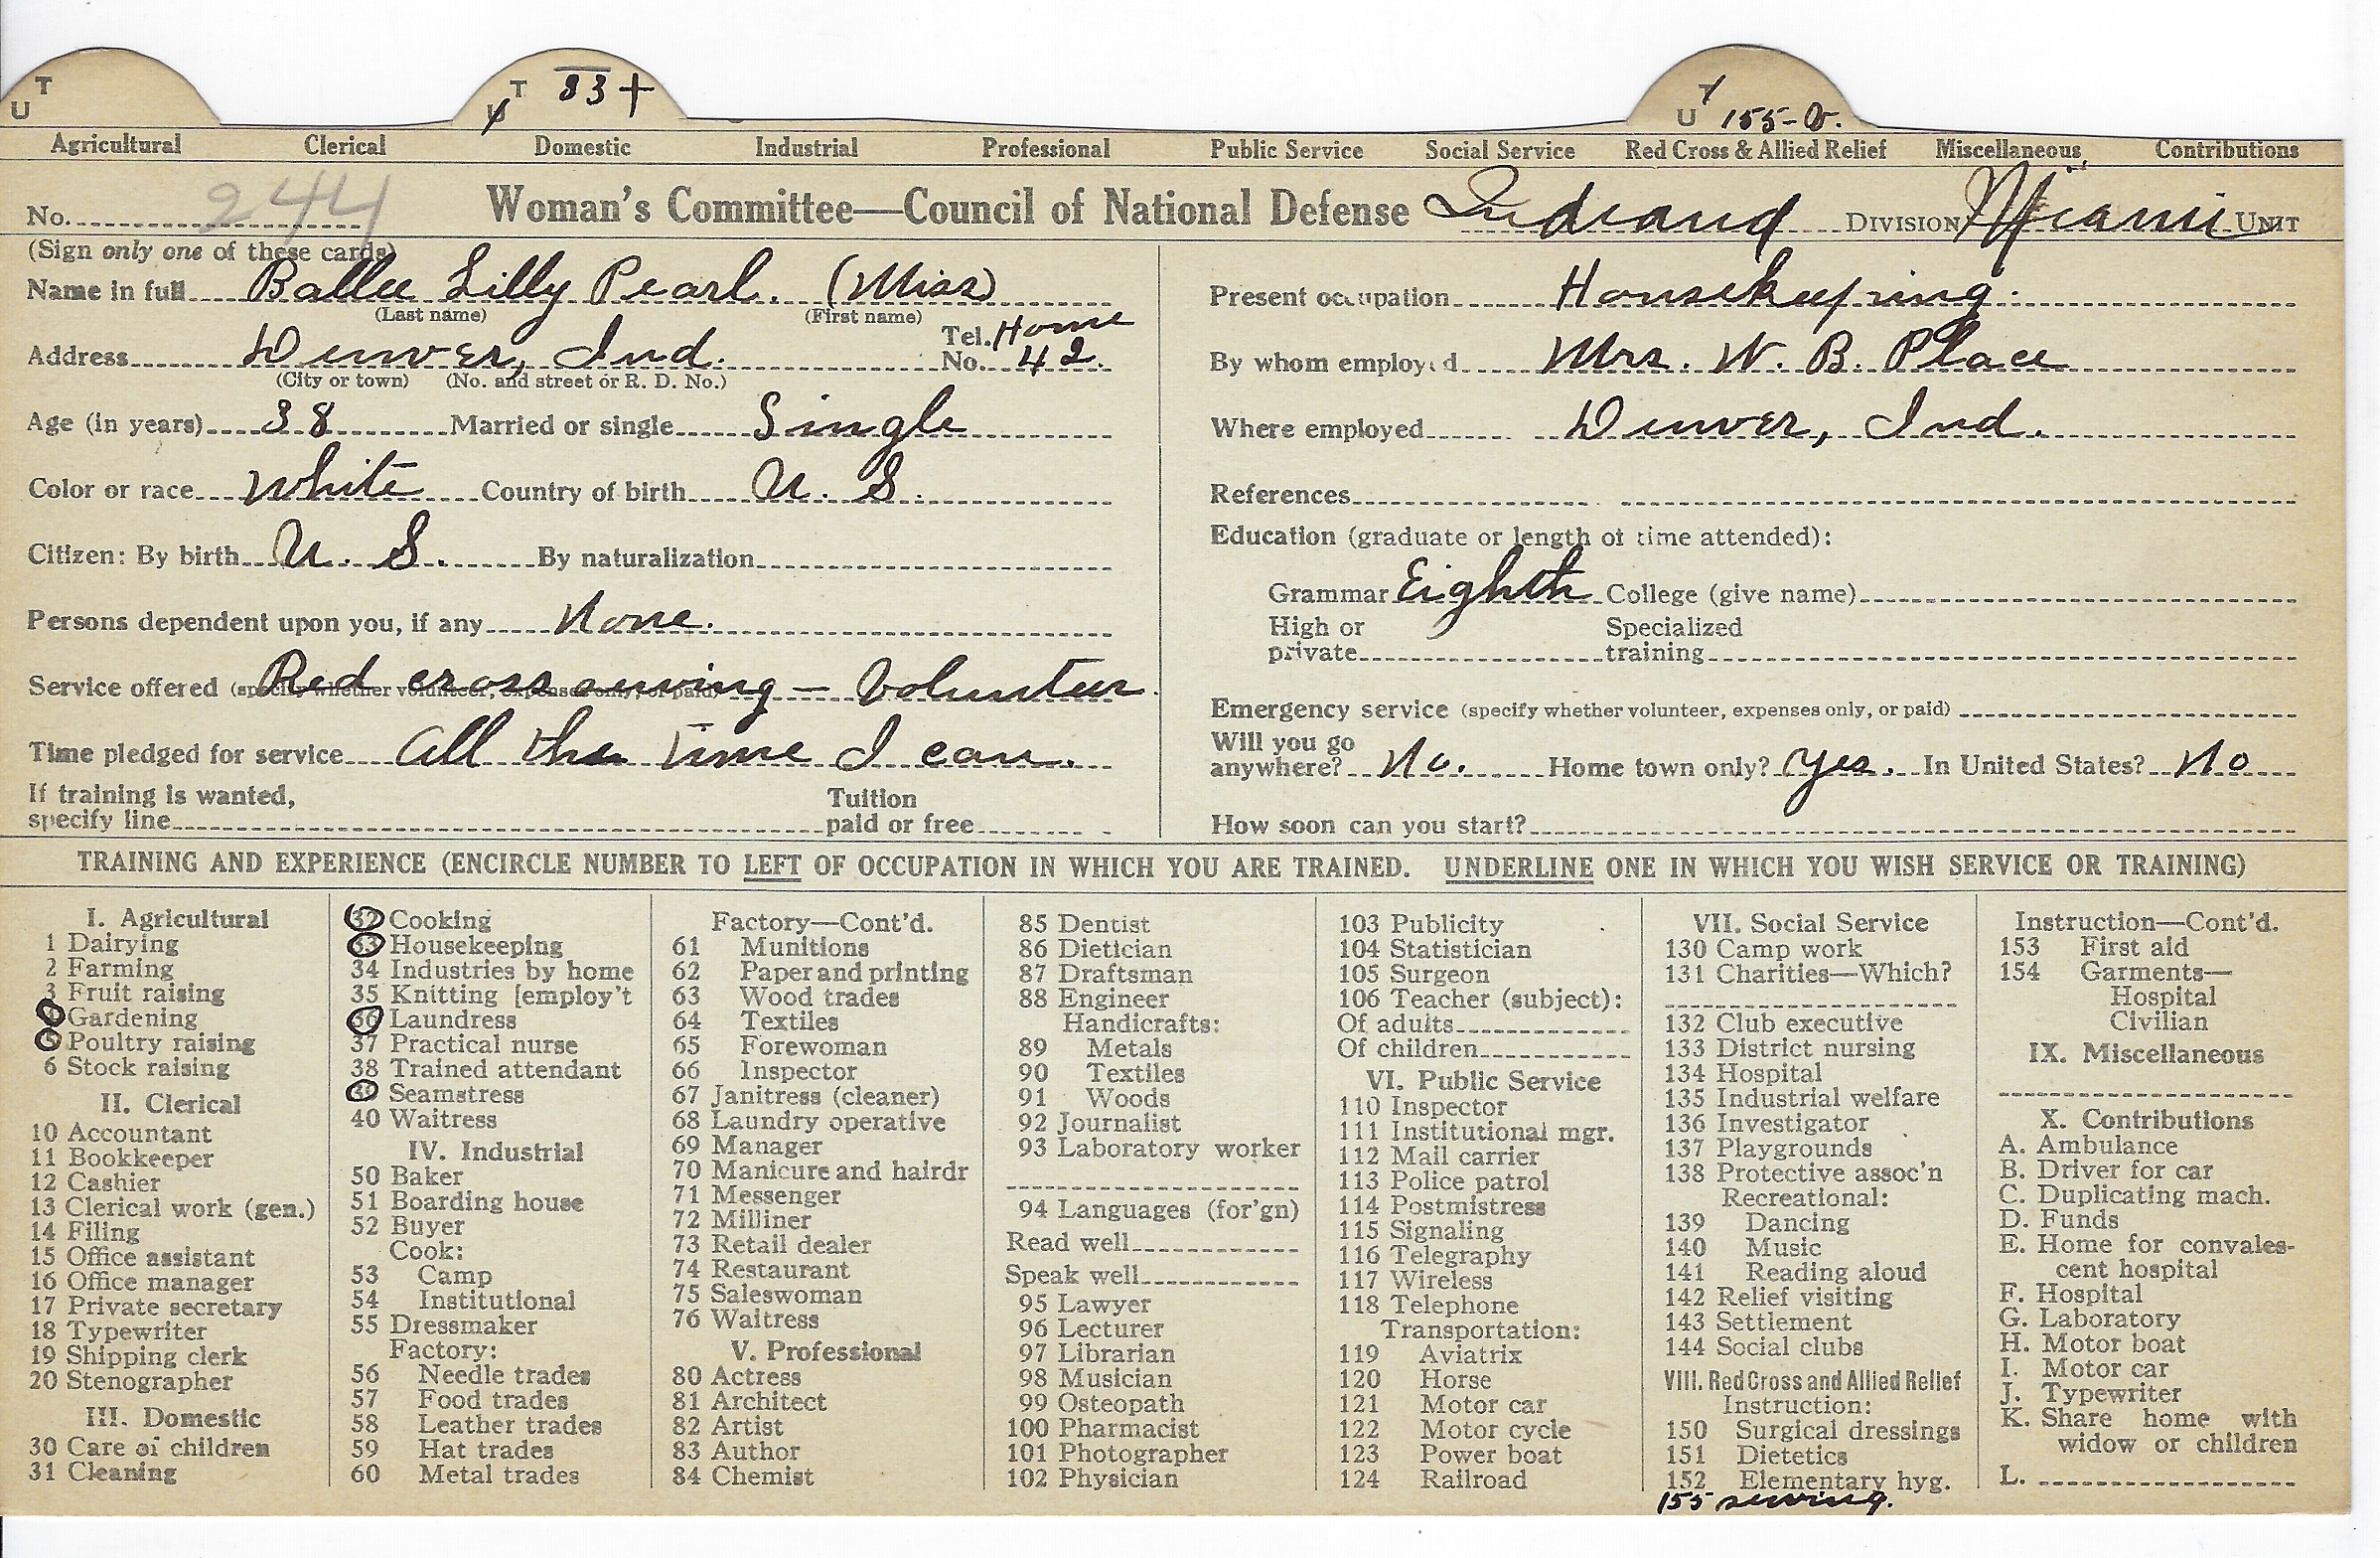 T
U
T 33 +
U
T
U 155-V.
Agricultural Clerical Domestic Industrial Professional Public Service Social Service Red Cross & Allied Relief Miscellaneous Contributions
No. 244 Woman's Committee—Council of National Defense Indiana DIVISION Miami UNIT
(Sign only one of these cards)
Name in full Ballee Lilly Pearl. (Miss)
(Last name) (First name)
Address Denver, Ind. Tel. No. Home 42.
(City or town) (No. and street or R. D. No.)
Age (in years) 38 Married or single Single
Color or race White Country of birth U. S.
Citizen: By birth U. S. By naturalization
Persons dependent upon you, if any None.
Service offered (specify whether volunteer, expenses only, or paid) Red cross sewing – Volunteer.
Time pledged for service All the time I can.
If training is wanted, Tuition
specify line paid or free
Present occupation Housekeeping.
By whom employed Mrs. W. B. Place
Where employed Denver, Ind.
References
Education (graduate or length of time attended):
Grammar Eighth College (give name)
High or Specialized
private training
Emergency service (specify whether volunteer, expenses only, or paid)
Will you go
anywhere? No. Home town only? Yes. In United States? No
How soon can you start?
TRAINING AND EXPERIENCE (ENCIRCLE NUMBER TO LEFT OF OCCUPATION IN WHICH YOU ARE TRAINED. UNDERLINE ONE IN WHICH YOU WISH SERVICE OR TRAINING)
I. Agricultural
1 Dairying
2 Farming
3 Fruit raising
4 Gardening
5 Poultry raising
6 Stock raising
II. Clerical
10 Accountant
11 Bookkeeper
12 Cashier
13 Clerical work (gen.)
14 Filing
15 Office assistant
16 Office manager
17 Private secretary
18 Typewriter
19 Shipping clerk
20 Stenographer
III. Domestic
30 Care of children
31 Cleaning
32 Cooking
33 Housekeeping
34 Industries by home
35 Knitting [employ't
36 Laundress
37 Practical nurse
38 Trained attendant
39 Seamstress
40 Waitress
IV. Industrial
50 Baker
51 Boarding house
52 Buyer
Cook:
53 Camp
54 Institutional
55 Dressmaker
Factory:
56 Needle trades
57 Food trades
58 Leather trades
59 Hat trades
60 Metal trades
Factory—Cont'd.
61 Munitions
62 Paper and printing
63 Wood trades
64 Textiles
65 Forewoman
66 Inspector
67 Janitress (cleaner)
68 Laundry operative
69 Manager
70 Manicure and hairdr
71 Messenger
72 Milliner
73 Retail dealer
74 Restaurant
75 Saleswoman
76 Waitress
V. Professional
80 Actress
81 Architect
82 Artist
83 Author
84 Chemist
85 Dentist
86 Dietician
87 Draftsman
88 Engineer
Handicrafts:
89 Metals
90 Textiles
91 Woods
92 Journalist
93 Laboratory worker
94 Languages (for'gn)
Read well
Speak well
95 Lawyer
96 Lecturer
97 Librarian
98 Musician
99 Osteopath
100 Pharmacist
101 Photographer
102 Physician
103 Publicity
104 Statistician
105 Surgeon
106 Teacher (subject):
Of adults
Of children
VI. Public Service
110 Inspector
111 Institutional mgr.
112 Mail carrier
113 Police patrol
114 Postmistress
115 Signaling
116 Telegraphy
117 Wireless
118 Telephone
Transportation:
119 Aviatrix
120 Horse
121 Motor car
122 Motor cycle
123 Power boat
124 Railroad
VII. Social Service
130 Camp work
131 Charities—Which?
132 Club executive
133 District nursing
134 Hospital
135 Industrial welfare
136 Investigator
137 Playgrounds
138 Protective assoc'n
Recreational:
139 Dancing
140 Music
141 Reading aloud
142 Relief visiting
143 Settlement
144 Social clubs
VIII. Red Cross and Allied Relief
Instruction:
150 Surgical dressings
151 Dietetics
152 Elementary hyg.
155 sewing.
Instruction—Cont'd.
153 First aid
154 Garments—
Hospital
Civilian
IX. Miscellaneous
X. Contributions
A. Ambulance
B. Driver for car
C. Duplicating mach.
D. Funds
E. Home for convales-
cent hospital
F. Hospital
G. Laboratory
H. Motor boat
I. Motor car
J. Typewriter
K. Share home with
widow or children
L.